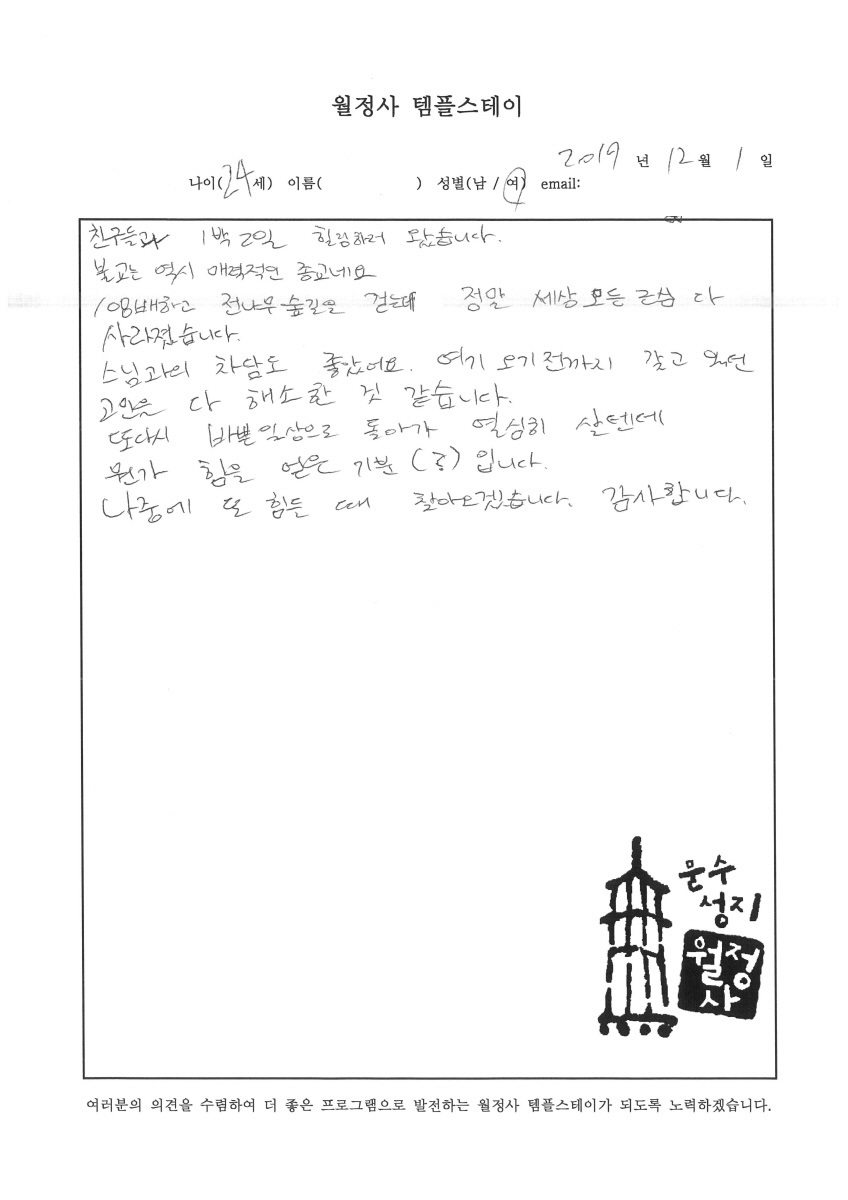 월정사 템플스테이
2019 년 12 월 1 일
나이(24세) 이름( ) 성별(남 / 여) email:
친구들과 1박 2일 힐링하러 왔습니다.
불교는 역시 매력적인 종교네요
108배하고 전나무 숲길을 걷는데 정말 세상 모든 근심 다
사라졌습니다.
스님과의 차담도 좋았어요. 여기 오기 전까지 갖고 있던
고민을 다 해소한 것 같습니다.
또다시 바쁜 일상으로 돌아가 열심히 살텐데
뭔가 힘을 얻은 기분 ( ) 입니다.
나중에 또 힘든 때 찾아오겠습니다. 감사합니다.
문수
성지
월정
사
여러분의 의견을 수렴하여 더 좋은 프로그램으로 발전하는 월정사 템플스테이가 되도록 노력하겠습니다.